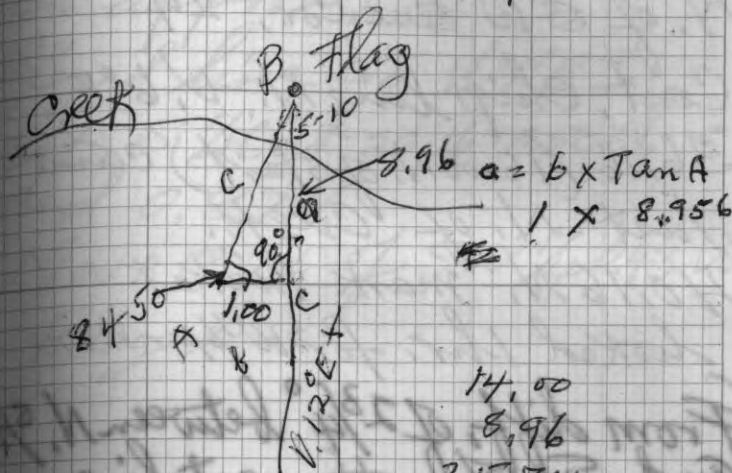 B Flag
Creek
5-10
8.96 a = b x Tan A
C
a
1 x 8.956
90°
84-50
1,00
C
A
b
N. 12° E
14,00
8,96